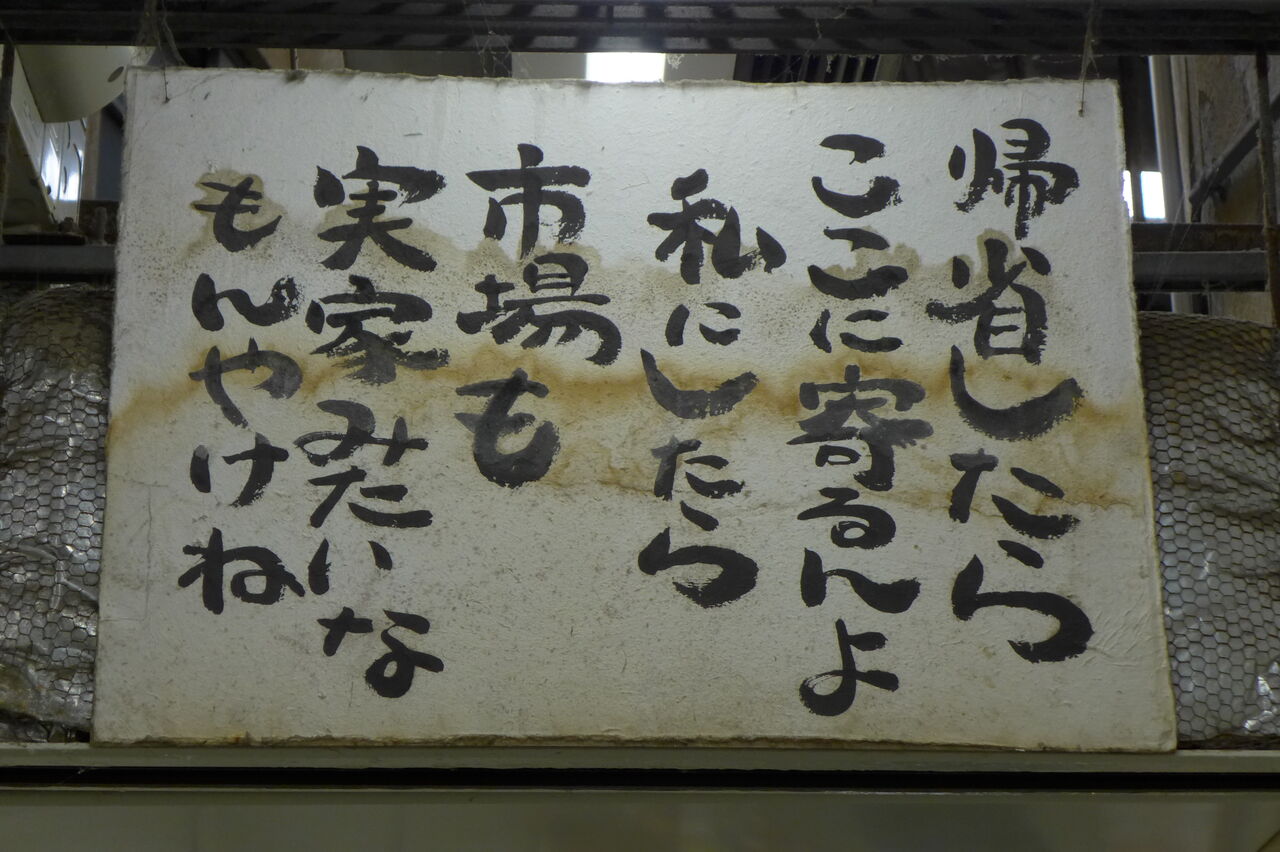 帰省したら
ここに寄るんよ
私にしたら
市場も
実家みたいな
もんやけね